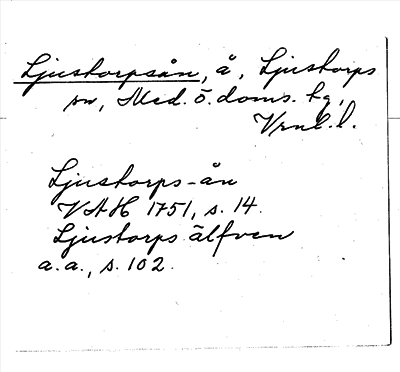 Ljustorpsån, å, Ljustorps
sn, Med. ö. doms. tg,
Vrnl. l.
Ljustorps-ån
VAH 1751, s. 14.
Ljustorps älfven
a.a., s. 102.